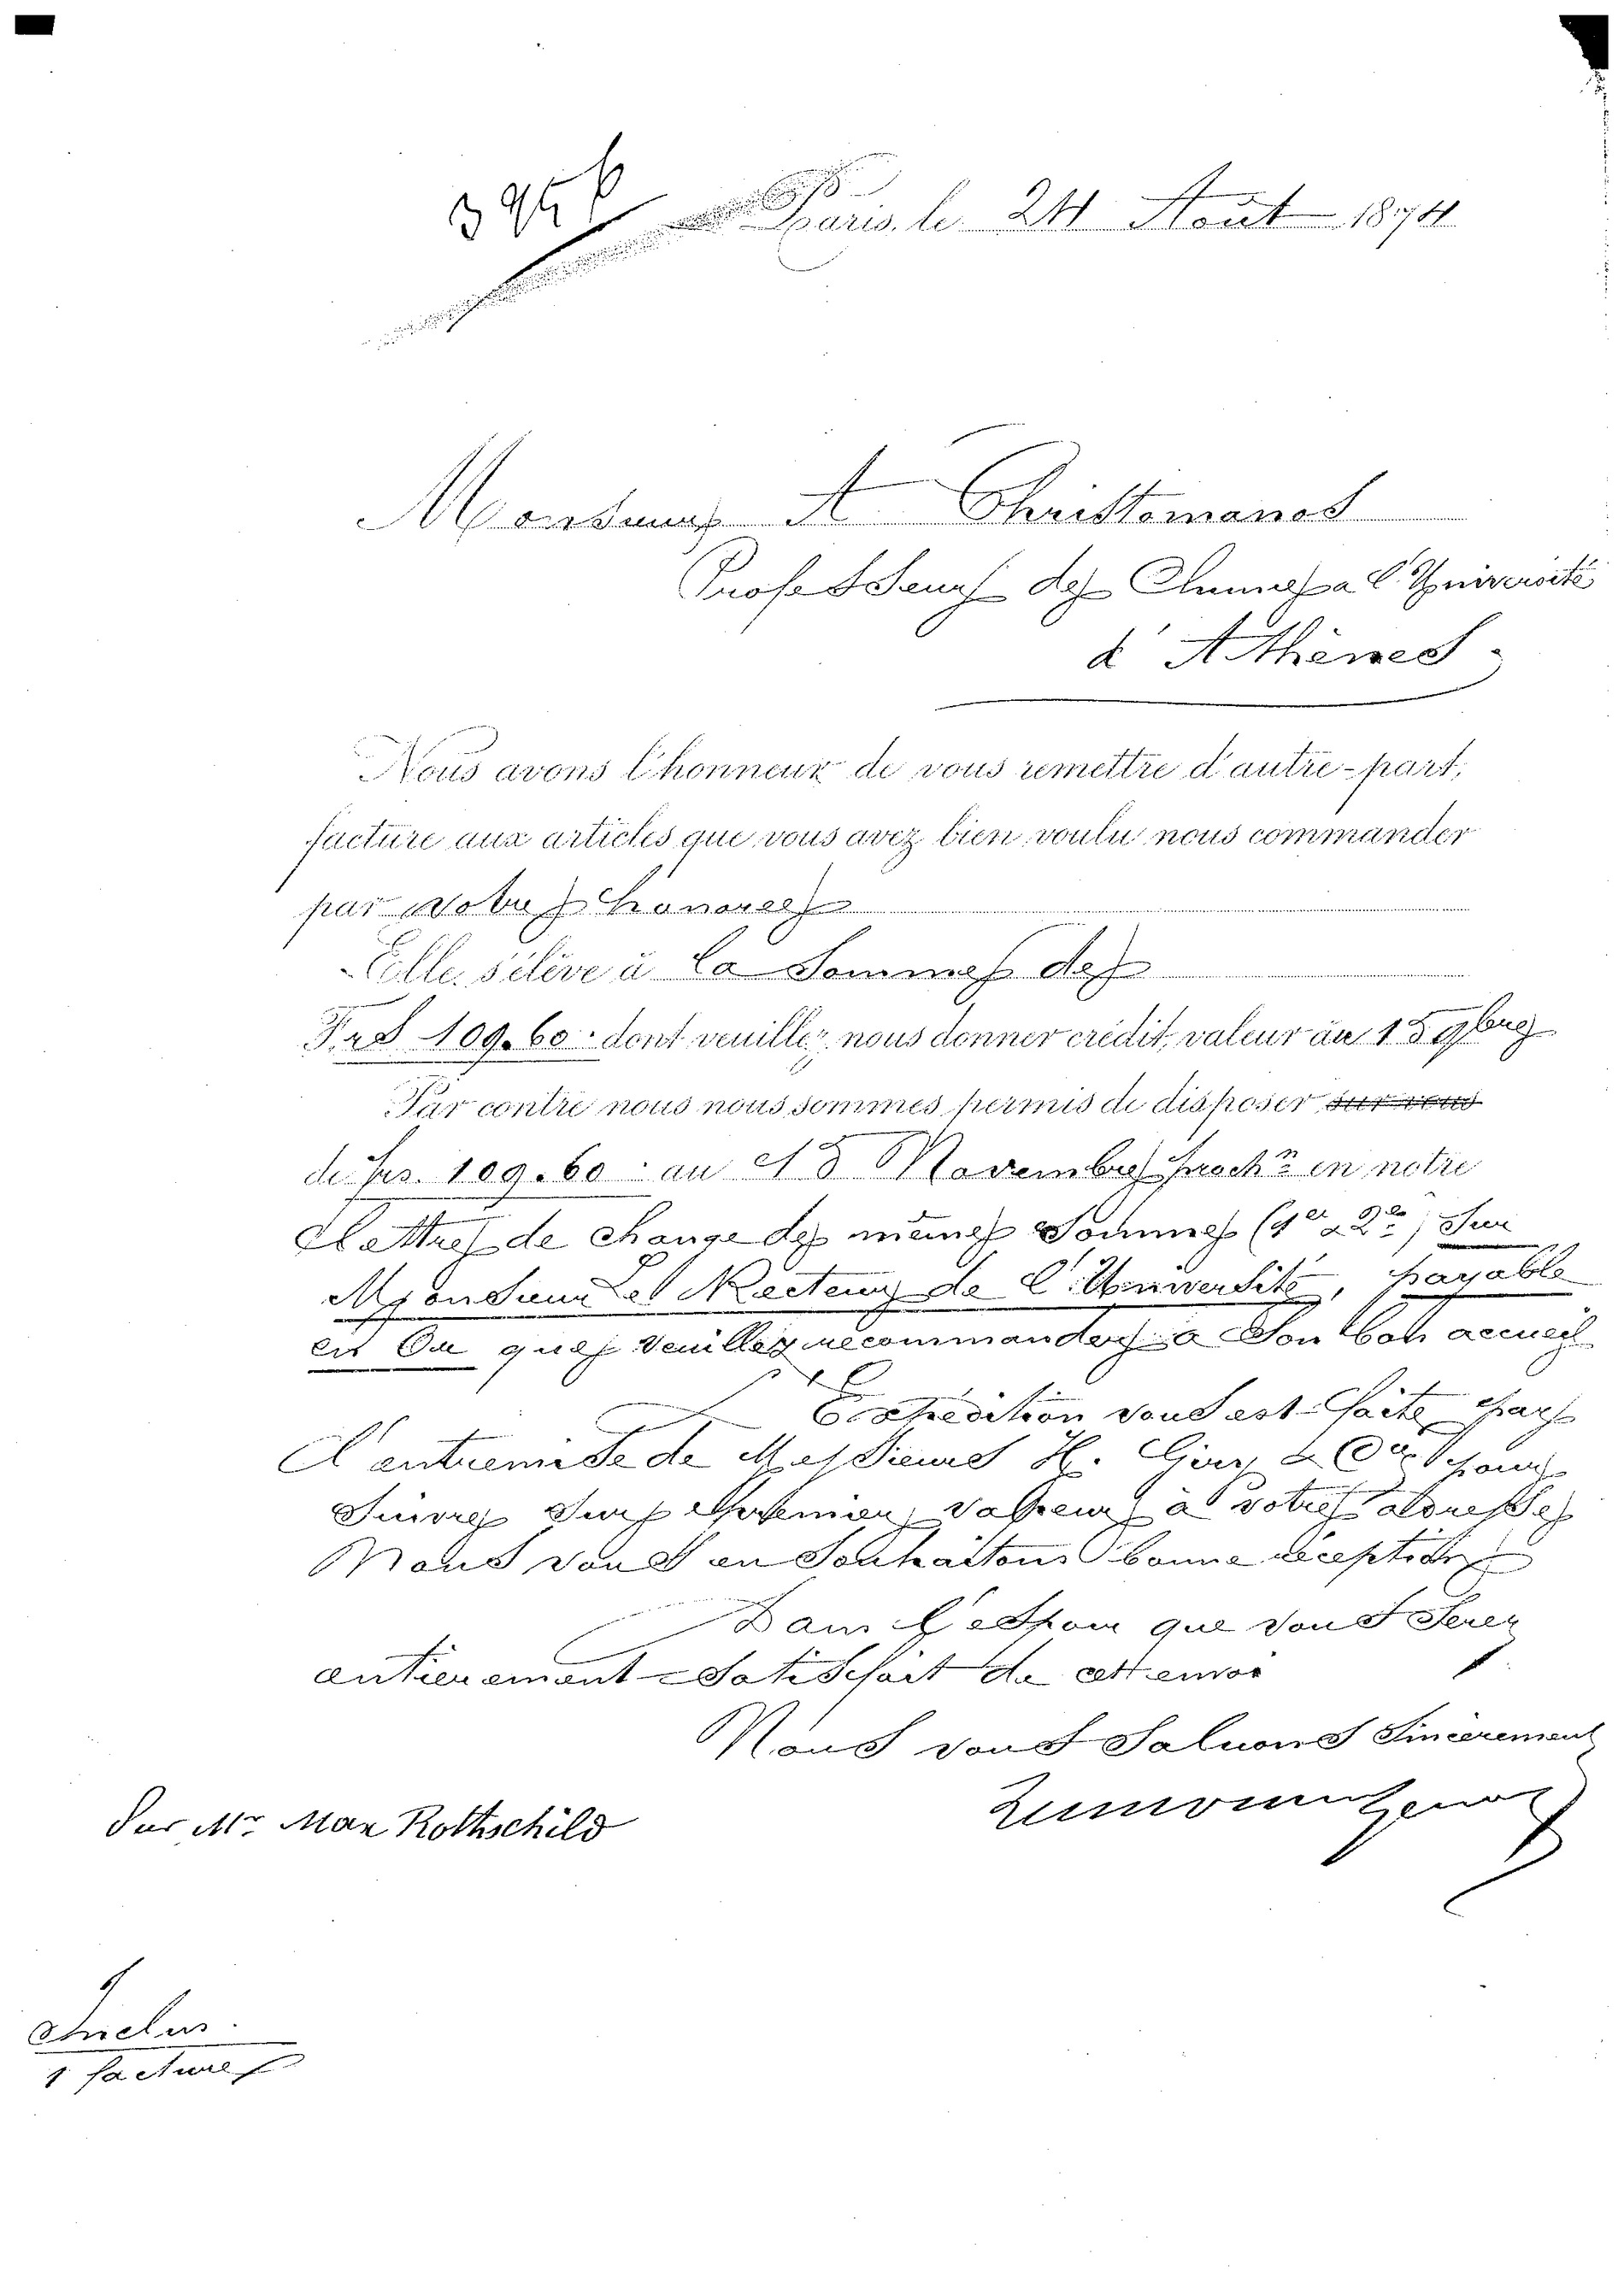 Paris, le 24 Août 1874
Monsieur A Christomanos
Professeur de Chimie a l'Université
d'Athènes
Nous avons l'honneur de vous remettre d'autre-part,
facture aux articles que vous avez bien voulu nous commander
par Votre honorée
Elle s'élève à la Somme de
Frs 109.60 dont veuillez nous donner crédit, valeur au 15 9bre
Par contre nous nous sommes permis de disposer sur vous
de frs. 109.60 au 15 Novembre proch.n en notre
Lettre de change de même Somme (1re & 2de) Sur
Monsieur le Recteur de l'Université, payable
que Veuillez recommander a Son bon accueil
Expédition vous est faite par
l'entremise de Messieurs H. & Cie pour
Suivre Sur vapeur à votre adresse
Nous vous en Souhaitons bonne réception
Dans l'espoir que vous Serez
entièrement Satisfait de cet envoi
Nous vous Saluons Sincèrement
Sur Mr. Max Rothschild
Inclus
1 facture